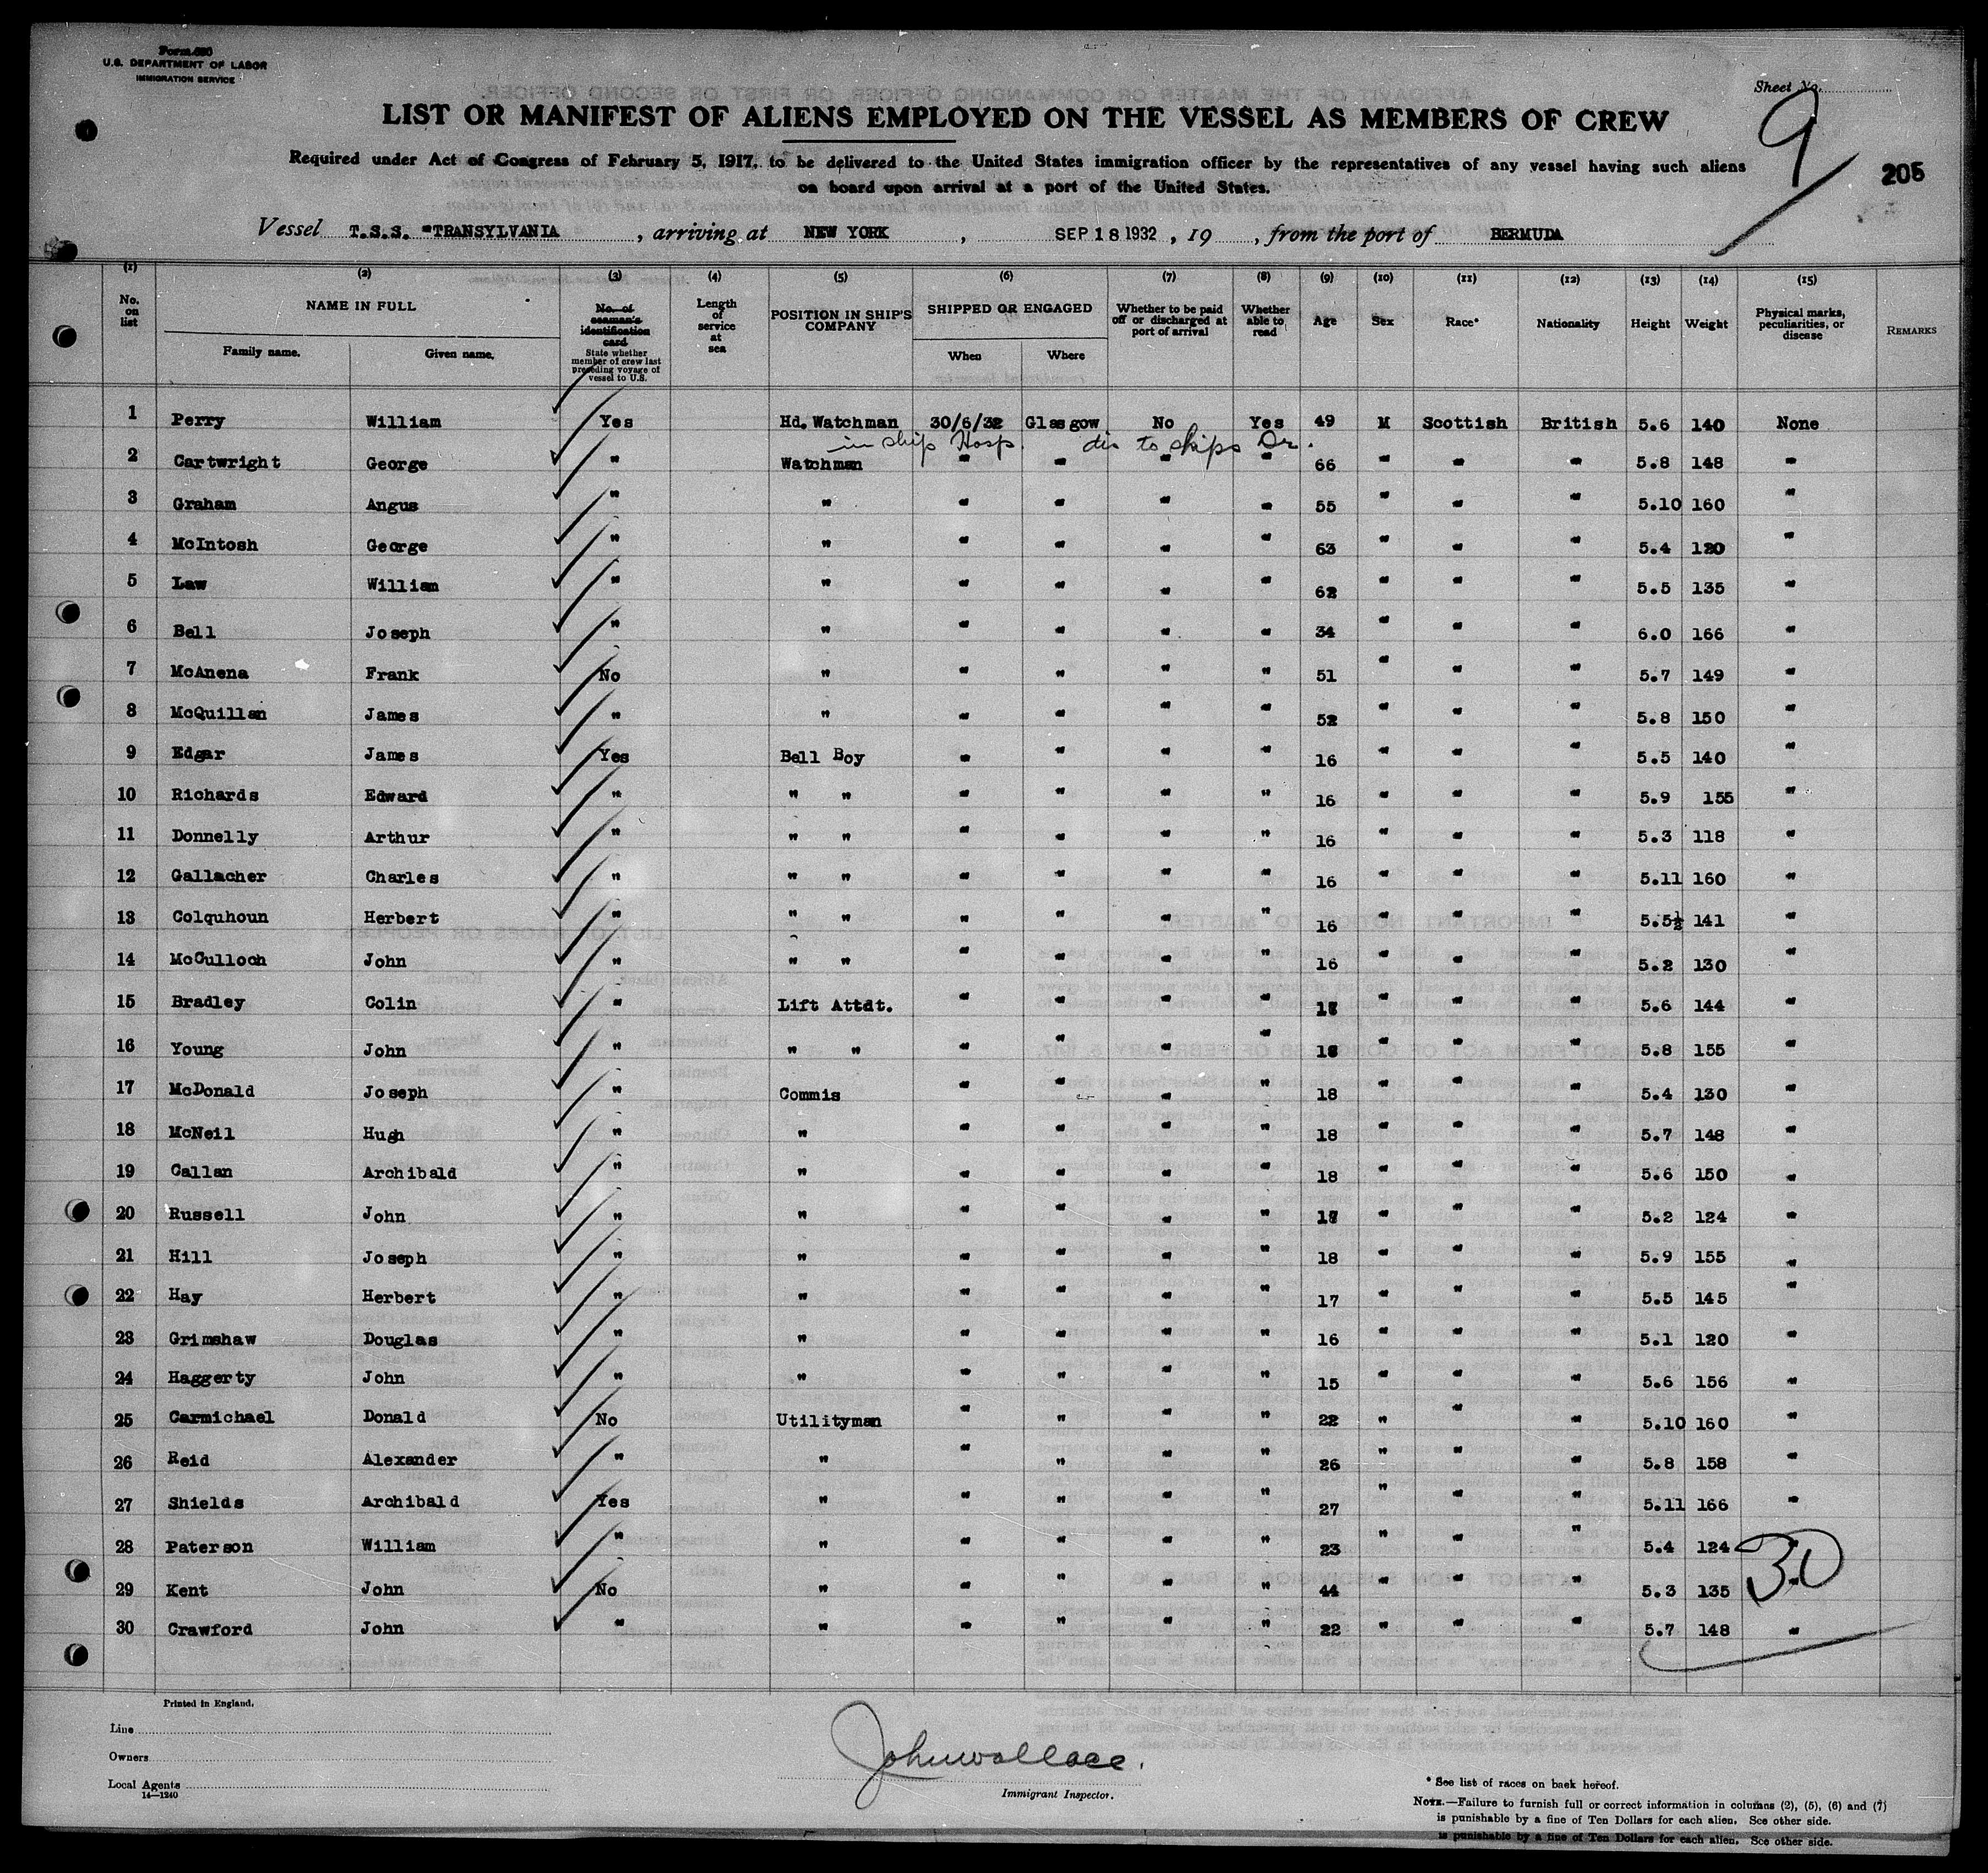 Form 680
U.S. DEPARTMENT OF LABOR
IMMIGRATION SERVICE
Sheet No. 9
LIST OR MANIFEST OF ALIENS EMPLOYED ON THE VESSEL AS MEMBERS OF CREW
Required under Act of Congress of February 5, 1917, to be delivered to the United States immigration officer by the representatives of any vessel having such aliens
on board upon arrival at a port of the United States.
205
Vessel T.S.S. "TRANSYLVANIA , arriving at NEW YORK , SEP 18 1932 , 19 , from the port of BERMUDA
(1) (2) (3) (4) (5) (6) (7) (8) (9) (10) (11) (12) (13) (14) (15)
No. on list NAME IN FULL Family name. Given name. No. of seaman's identification card State whether member of crew last preceding voyage of vessel to U.S. Length of service at sea POSITION IN SHIP'S COMPANY SHIPPED OR ENGAGED When Where Whether to be paid off or discharged at port of arrival Whether able to read Age Sex Race* Nationality Height Weight Physical marks, peculiarities, or disease REMARKS
1 Perry William Yes Hd. Watchman 30/6/32 Glasgow No Yes 49 M Scottish British 5.6 140 None
in ship Hosp. dis to ships Dr.
2 Cartwright George " Watchman " " " " 66 " " " 5.8 148 "
3 Graham Angus " " " " " " 55 " " " 5.10 160 "
4 McIntosh George " " " " " " 63 " " " 5.4 120 "
5 Law William " " " " " " 62 " " " 5.5 135 "
6 Bell Joseph " " " " " " 34 " " " 6.0 166 "
7 McAnena Frank No " " " " " 51 " " " 5.7 149 "
8 McQuillan James " " " " " " 52 " " " 5.8 150 "
9 Edgar James Yes Bell Boy " " " " 16 " " " 5.5 140 "
10 Richards Edward " " " " " " " 16 " " " 5.9 155 "
11 Donnelly Arthur " " " " " " " 16 " " " 5.3 118 "
12 Gallacher Charles " " " " " " " 16 " " " 5.11 160 "
13 Colquhoun Herbert " " " " " " " 16 " " " 5.5½ 141 "
14 McCulloch John " " " " " " " 16 " " " 5.2 130 "
15 Bradley Colin " Lift Attdt. " " " " " " " 5.6 144 "
16 Young John " " " " " " " " " " 5.8 155 "
17 McDonald Joseph " Commis " " " " 18 " " " 5.4 130 "
18 McNeil Hugh " " " " " " 18 " " " 5.7 148 "
19 Callan Archibald " " " " " " 18 " " " 5.6 150 "
20 Russell John " " " " " " " " " 5.2 124 "
21 Hill Joseph " " " " " " 18 " " " 5.9 155 "
22 Hay Herbert " " " " " " 17 " " " 5.5 145 "
23 Grimshaw Douglas " " " " " " 16 " " " 5.1 120 "
24 Haggerty John " " " " " " 15 " " " 5.6 156 "
25 Carmichael Donald No Utilityman " " " " 22 " " " 5.10 160 "
26 Reid Alexander " " " " " " 26 " " " 5.8 158 "
27 Shields Archibald Yes " " " " " 27 " " " 5.11 166 "
28 Paterson William " " " " " " 23 " " " 5.4 124
29 Kent John No " " " " " 44 " " " 5.3 135 "
30 Crawford John " " " " " " 22 " " " 5.7 148 "
30
Printed in England.
Line
Owners
Local Agents
14—1240
John Wallace.
Immigrant Inspector.
* See list of races on back hereof.
NOTE.—Failure to furnish full or correct information in columns (2), (5), (6) and (7)
is punishable by a fine of Ten Dollars for each alien. See other side.
is punishable by a fine of Ten Dollars for each alien. See other side.